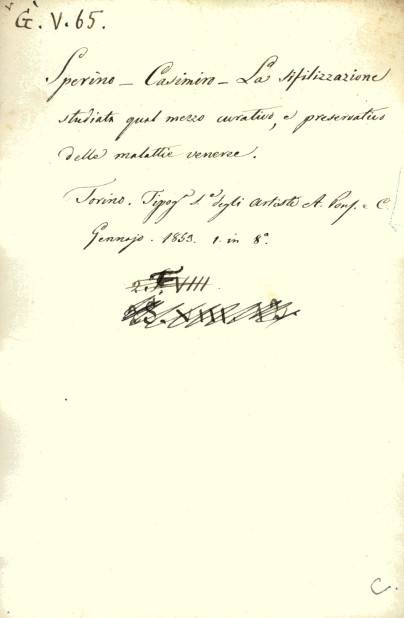 G. V. 65.
Sperino - Casimiro - La sifilizzazione
studiata qual mezzo curativo, e preservativo
delle malattie veneree.
Torino. Tipogª degli Artisti A. Pons. e C.
Gennajo. 1853. 1. in 8°.
2. F. VIII.
C.